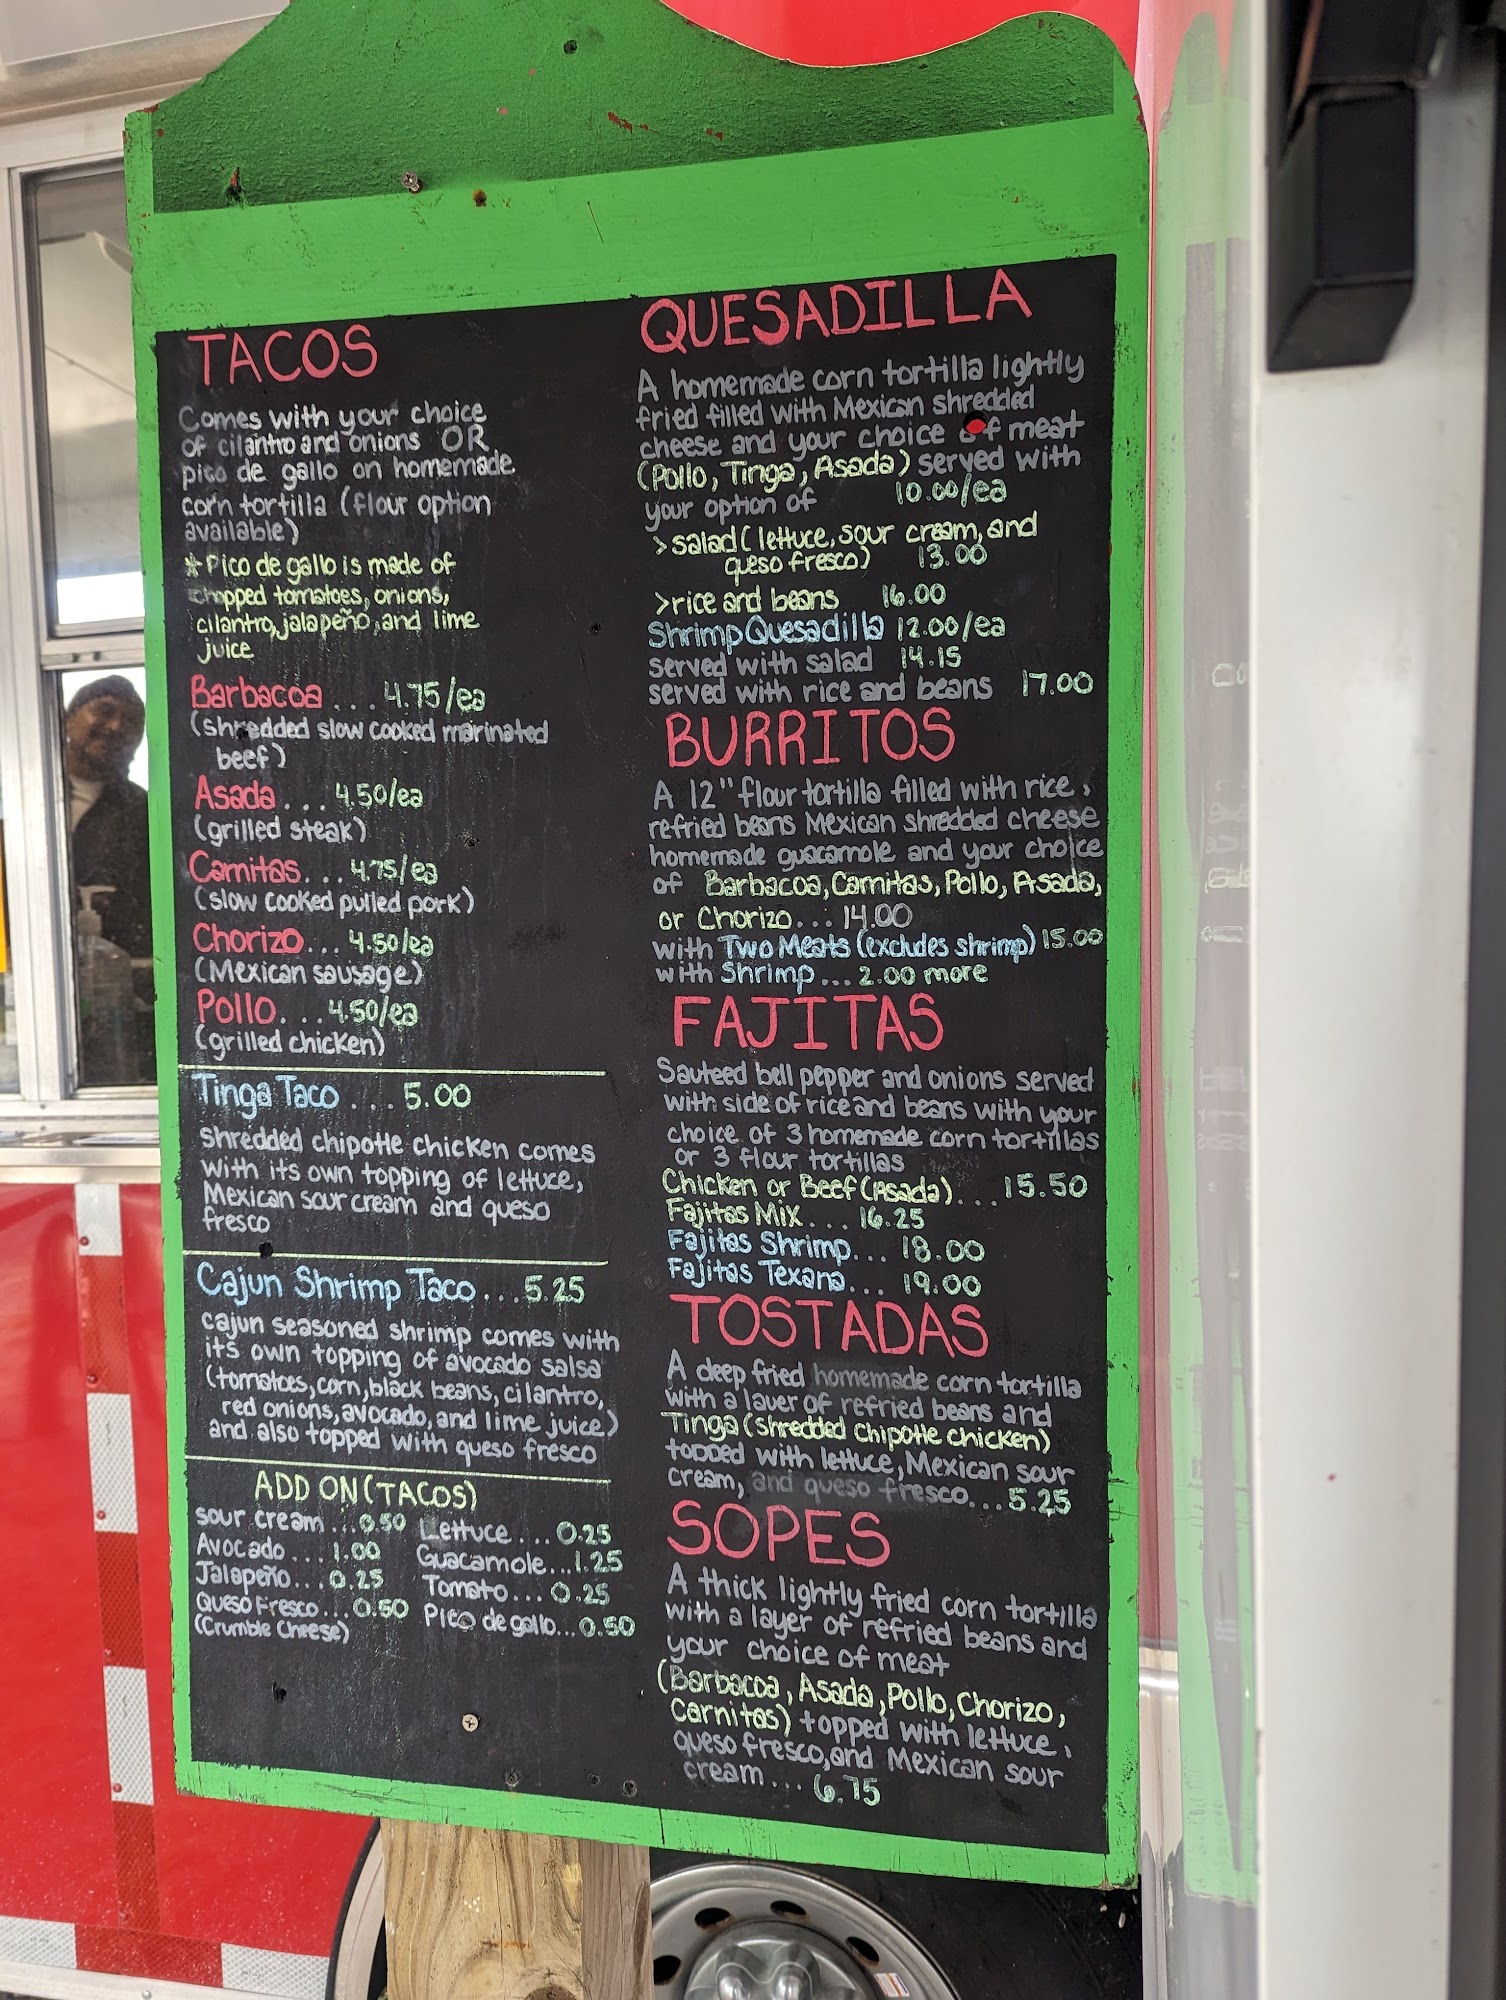 TACOS
Comes with your choice
of cilantro and onions OR
pico de gallo on homemade
corn tortilla (flour option
available)
* Pico de gallo is made of
chopped tomatoes, onions,
cilantro, jalapeño, and lime
juice
Barbacoa ... 4.75/ea
(shredded slow cooked marinated
beef)
Asada ... 4.50/ea
(grilled steak)
Carnitas ... 4.75/ea
(slow cooked pulled pork)
Chorizo ... 4.50/ea
(Mexican sausage)
Pollo ... 4.50/ea
(grilled chicken)
Tinga Taco ... 5.00
shredded chipotle chicken comes
with its own topping of lettuce,
Mexican sour cream and queso
fresco
Cajun Shrimp Taco ... 5.25
cajun seasoned shrimp comes with
its own topping of avocado salsa
(tomatoes, corn, black beans, cilantro,
red onions, avocado, and lime juice)
and also topped with queso fresco
ADD ON (TACOS)
sour cream ... 0.50 Lettuce ... 0.25
Avocado ... 1.00 Guacamole ... 1.25
Jalapeño ... 0.25 Tomato ... 0.25
Queso Fresco ... 0.50 Pico de gallo ... 0.50
(Crumble Cheese)
QUESADILLA
A homemade corn tortilla lightly
fried filled with Mexican shredded
cheese and your choice of meat
(Pollo, Tinga, Asada) served with
your option of 10.00/ea
>salad (lettuce, sour cream, and
queso fresco) 13.00
>rice and beans 16.00
Shrimp Quesadilla 12.00/ea
served with salad 14.15
served with rice and beans 17.00
BURRITOS
A 12" flour tortilla filled with rice,
refried beans Mexican shredded cheese
homemade guacamole and your choice
of Barbacoa, Carnitas, Pollo, Asada,
or Chorizo ... 14.00
with Two Meats (excludes shrimp) 15.00
with Shrimp ... 2.00 more
FAJITAS
Sauteed bell pepper and onions served
with side of rice and beans with your
choice of 3 homemade corn tortillas
or 3 flour tortillas
Chicken or Beef (Asada) ... 15.50
Fajitas Mix ... 16.25
Fajitas Shrimp ... 18.00
Fajitas Texana ... 19.00
TOSTADAS
A deep fried homemade corn tortilla
with a layer of refried beans and
Tinga (shredded chipotle chicken)
topped with lettuce, Mexican sour
cream, and queso fresco ... 5.25
SOPES
A thick lightly fried corn tortilla
with a layer of refried beans and
your choice of meat
(Barbacoa, Asada, Pollo, Chorizo,
Carnitas) topped with lettuce,
queso fresco, and Mexican sour
cream ... 6.75